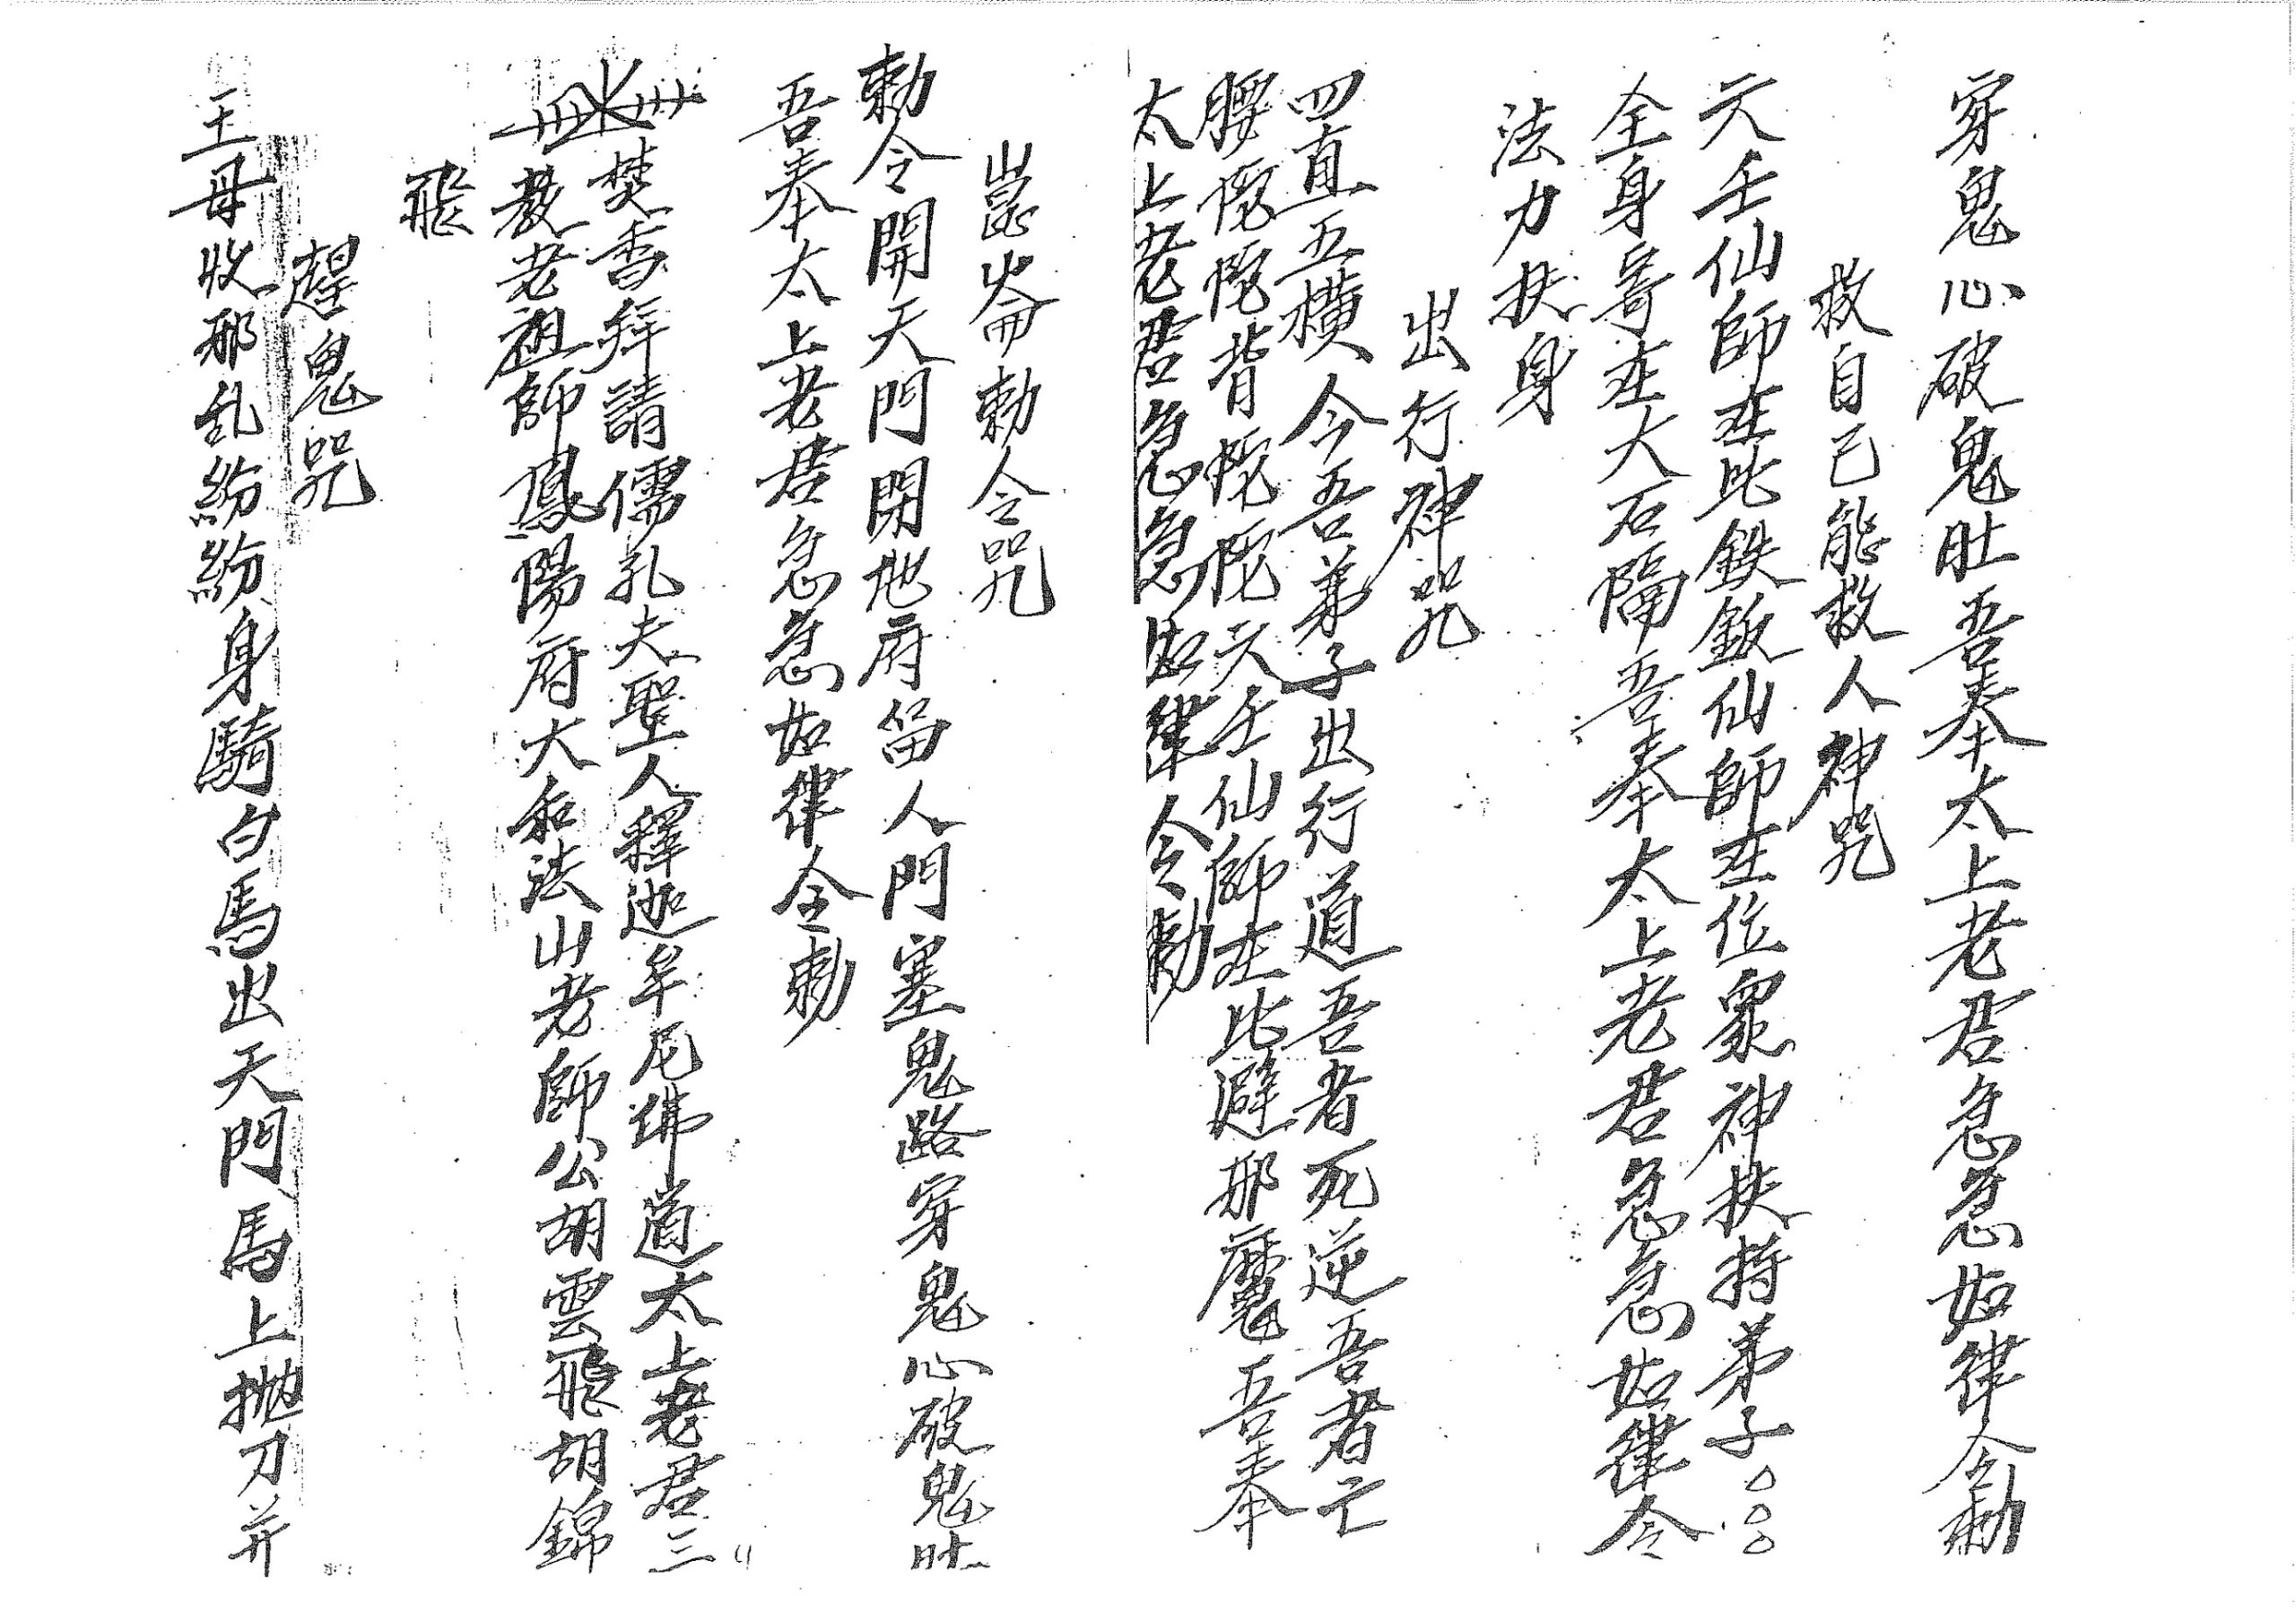 穿鬼心破鬼肚吾奉太上老君急急如律令勅
救自己能救人神咒
六壬仙師在此鉄釵仙師在位眾神扶持弟子△△△
全身寄在大石隔吾奉太上老君急急如律令
法力扶身
出行神咒
四直五横今吾弟子出行道吾者死逆吾者亡
腰悾悾背悾悾六壬仙師在此避邪魔吾奉
太上老君急急如律令勅
崑崙勅令咒
勅令開天門閉地府留人門塞鬼路穿鬼心破鬼肚
吾奉太上老君急急如律令勅
焚香拜請儒孔夫聖人釋迦牟尼佛道太上老君三
教老祖師鳳陽府大和法山老師公胡雲飛胡錦
飛
趕鬼咒
王母收邪乱紛紛身騎白馬出天門馬上拋刀并